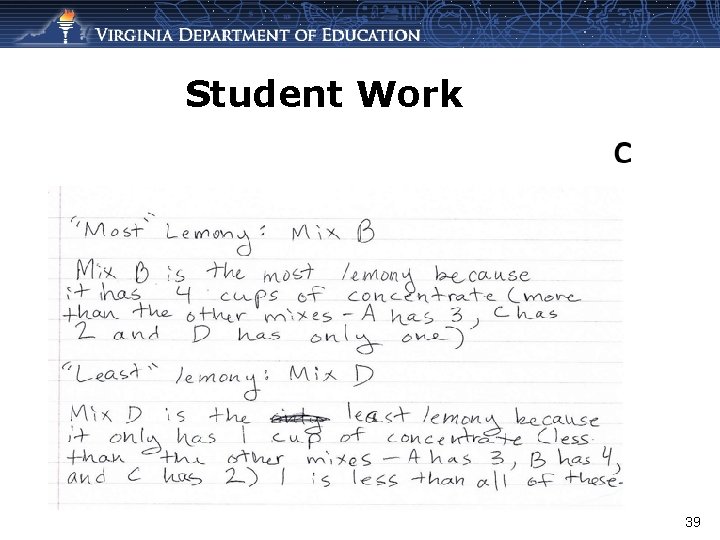 VIRGINIA DEPARTMENT OF EDUCATION
Student Work
C
"Most" Lemony: Mix B
Mix B is the most lemony because
it has 4 cups of concentrate (more
than the other mixes - A has 3, C has
2 and D has only one)
"Least" lemony: Mix D
Mix D is the least lemony because
it only has 1 cup of concentrate (less
than the other mixes - A has 3, B has 4,
and C has 2) 1 is less than all of these.
39